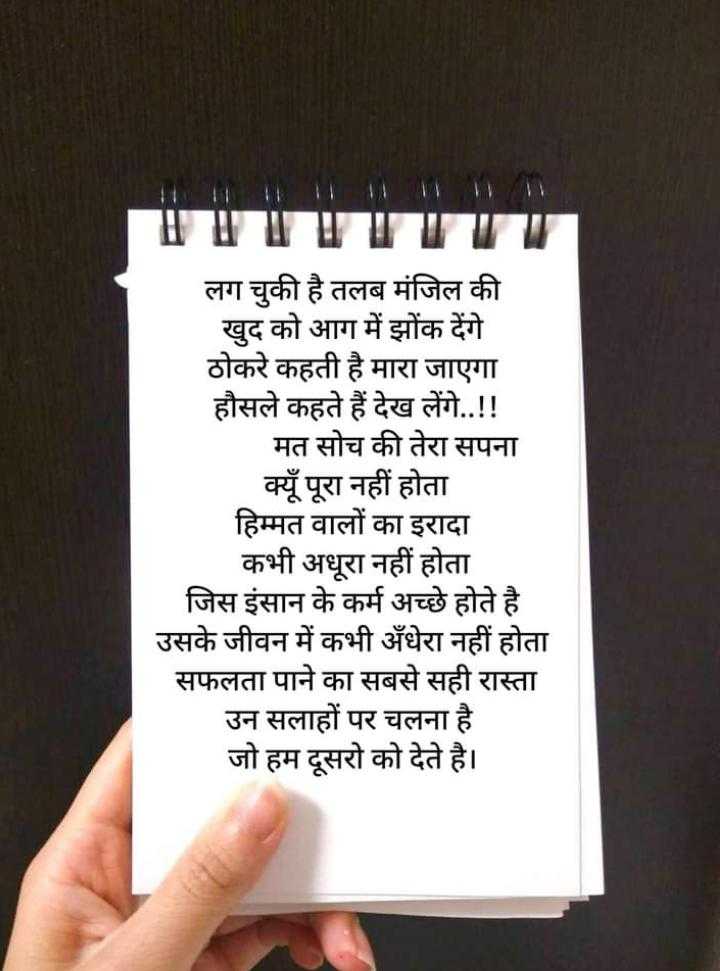 लग चुकी है तलब मंजिल की
खुद को आग में झोंक देंगे
ठोकरे कहती है मारा जाएगा
हौसले कहते हैं देख लेंगे..!!
मत सोच की तेरा सपना
क्यूँ पूरा नहीं होता
हिम्मत वालों का इरादा
कभी अधूरा नहीं होता
जिस इंसान के कर्म अच्छे होते है
उसके जीवन में कभी अँधेरा नहीं होता
सफलता पाने का सबसे सही रास्ता
उन सलाहों पर चलना है
जो हम दूसरो को देते है।